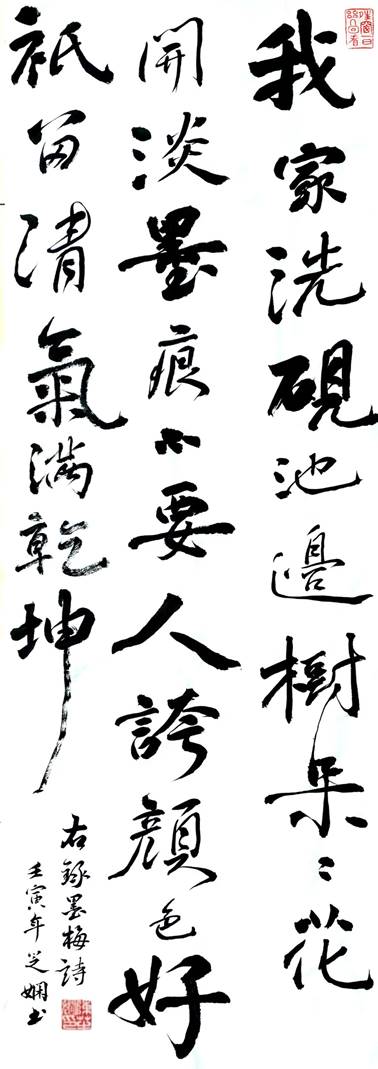 我家洗硯池邊樹朵〻花
開淡墨痕不要人誇顏色好
祇留清氣滿乾坤
右錄墨梅詩
壬寅年芝嫻書